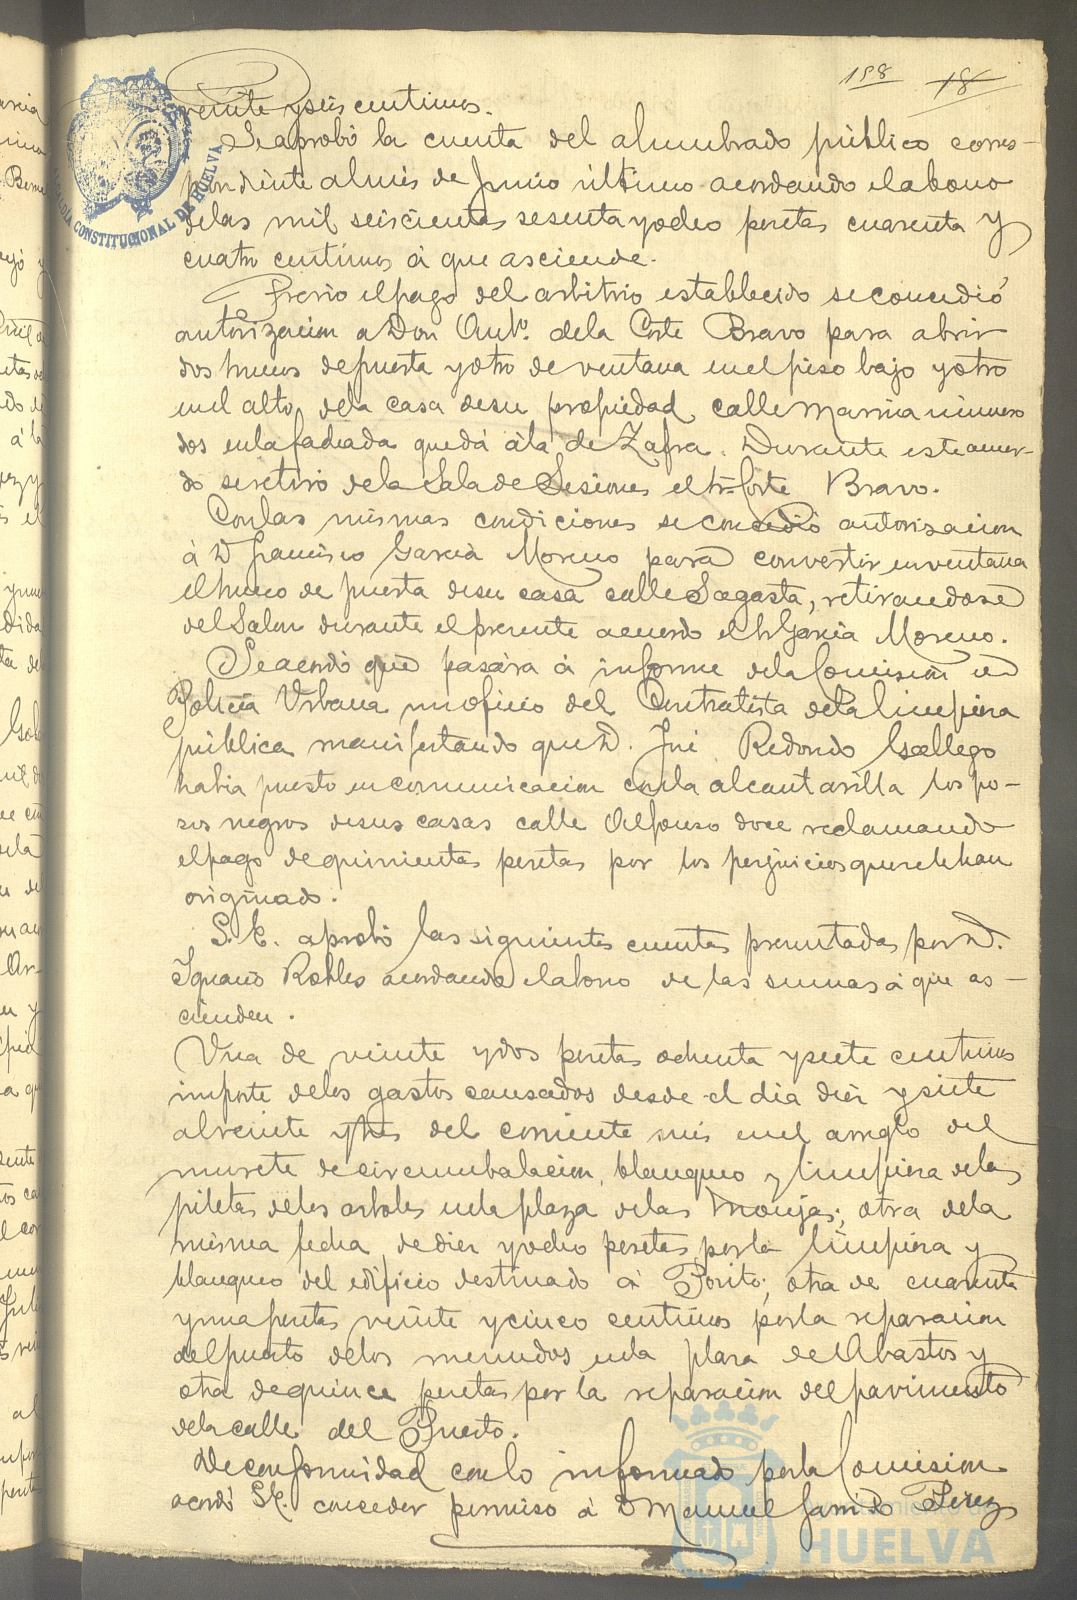 158 18
veinte y seis centimos.
Se aprobó la cuenta del alumbrado público corres-
pondiente al mes de Junio último acordando el abono
de las mil seiscientas sesenta y ocho pesetas cuarenta y
cuatro centimos á que asciende.
Previo el pago del arbitrio establecido se concedió
autorizacion a Don Antº. de la Corte Bravo para abrir
dos huecos de puerta y otro de ventana en el piso bajo y otro
en el alto, de la casa de su propiedad calle Marina numero
dos en la fachada que dá á la de Zafra. Durante este acuer-
do se retiró de la Sala de Sesiones el Sr. Corte Bravo.
Con las mismas condiciones se concedió autorizacion
á D Francisco Garcia Moreno para convertir en ventana
el hueco de puerta de su casa calle Sagasta, retirandose
del Salon durante el presente acuerdo el Sr Garcia Moreno.
Se acordó que pasára á informe de la Comision de
Policia Urbana un oficio del Contratista de la limpieza
pública manifestando que D. José Redondo Gallego
habia puesto en comunicacion con la alcantarilla los po-
sos negros de sus casas calle Alfonso doce reclamando
el pago de quinientas pesetas por los perjuicios que se le han
originado.
S. E. aprobó las siguientes cuentas presentadas por D.
Ignacio Robles acordando el abono de las sumas á que as-
cienden.
Una de veinte y dos pesetas ochenta y siete centimos
importe de los gastos causados desde el dia diez y siete
al veinte y tres del corriente mes en el arreglo del
murete de circumbalacion, blanqueo y limpieza de las
piletas de los arboles en la plaza de las Monjas; otra de la
misma fecha de diez y ocho pesetas por la limpieza y
blanqueo del edificio destinado á Posito; otra de cuarenta
y una pesetas veinte y cinco centimos por la reparacion
del puesto de los menudos en la plaza de Abastos y
otra de quince pesetas por la reparacion del pavimento
de la calle del Puerto.
De conformidad con lo informado por la Comision
acordó S. E. conceder permiso á D Manuel Garrido Perez
ALCALDÍA CONSTITUCIONAL DE HUELVA
Ayuntamiento de
HUELVA